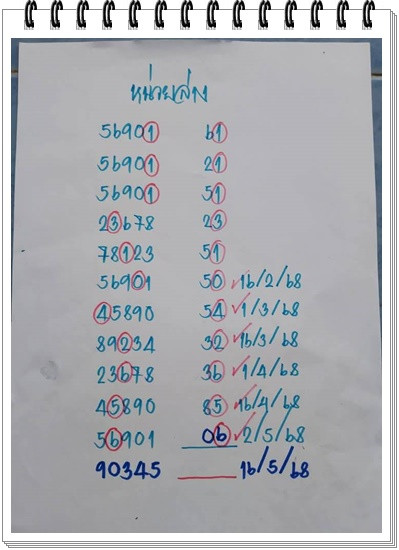 หน่วยล่าง
56901 61
56901 21
56901 51
23678 23
78123 51
56901 50 ✓ 16/2/68
45890 54 ✓ 1/3/68
89234 32 ✓ 16/3/68
23678 36 ✓ 1/4/68
45890 85 ✓ 16/4/68
56901 06 ✓ 2/5/68
90345 ___ 16/5/68